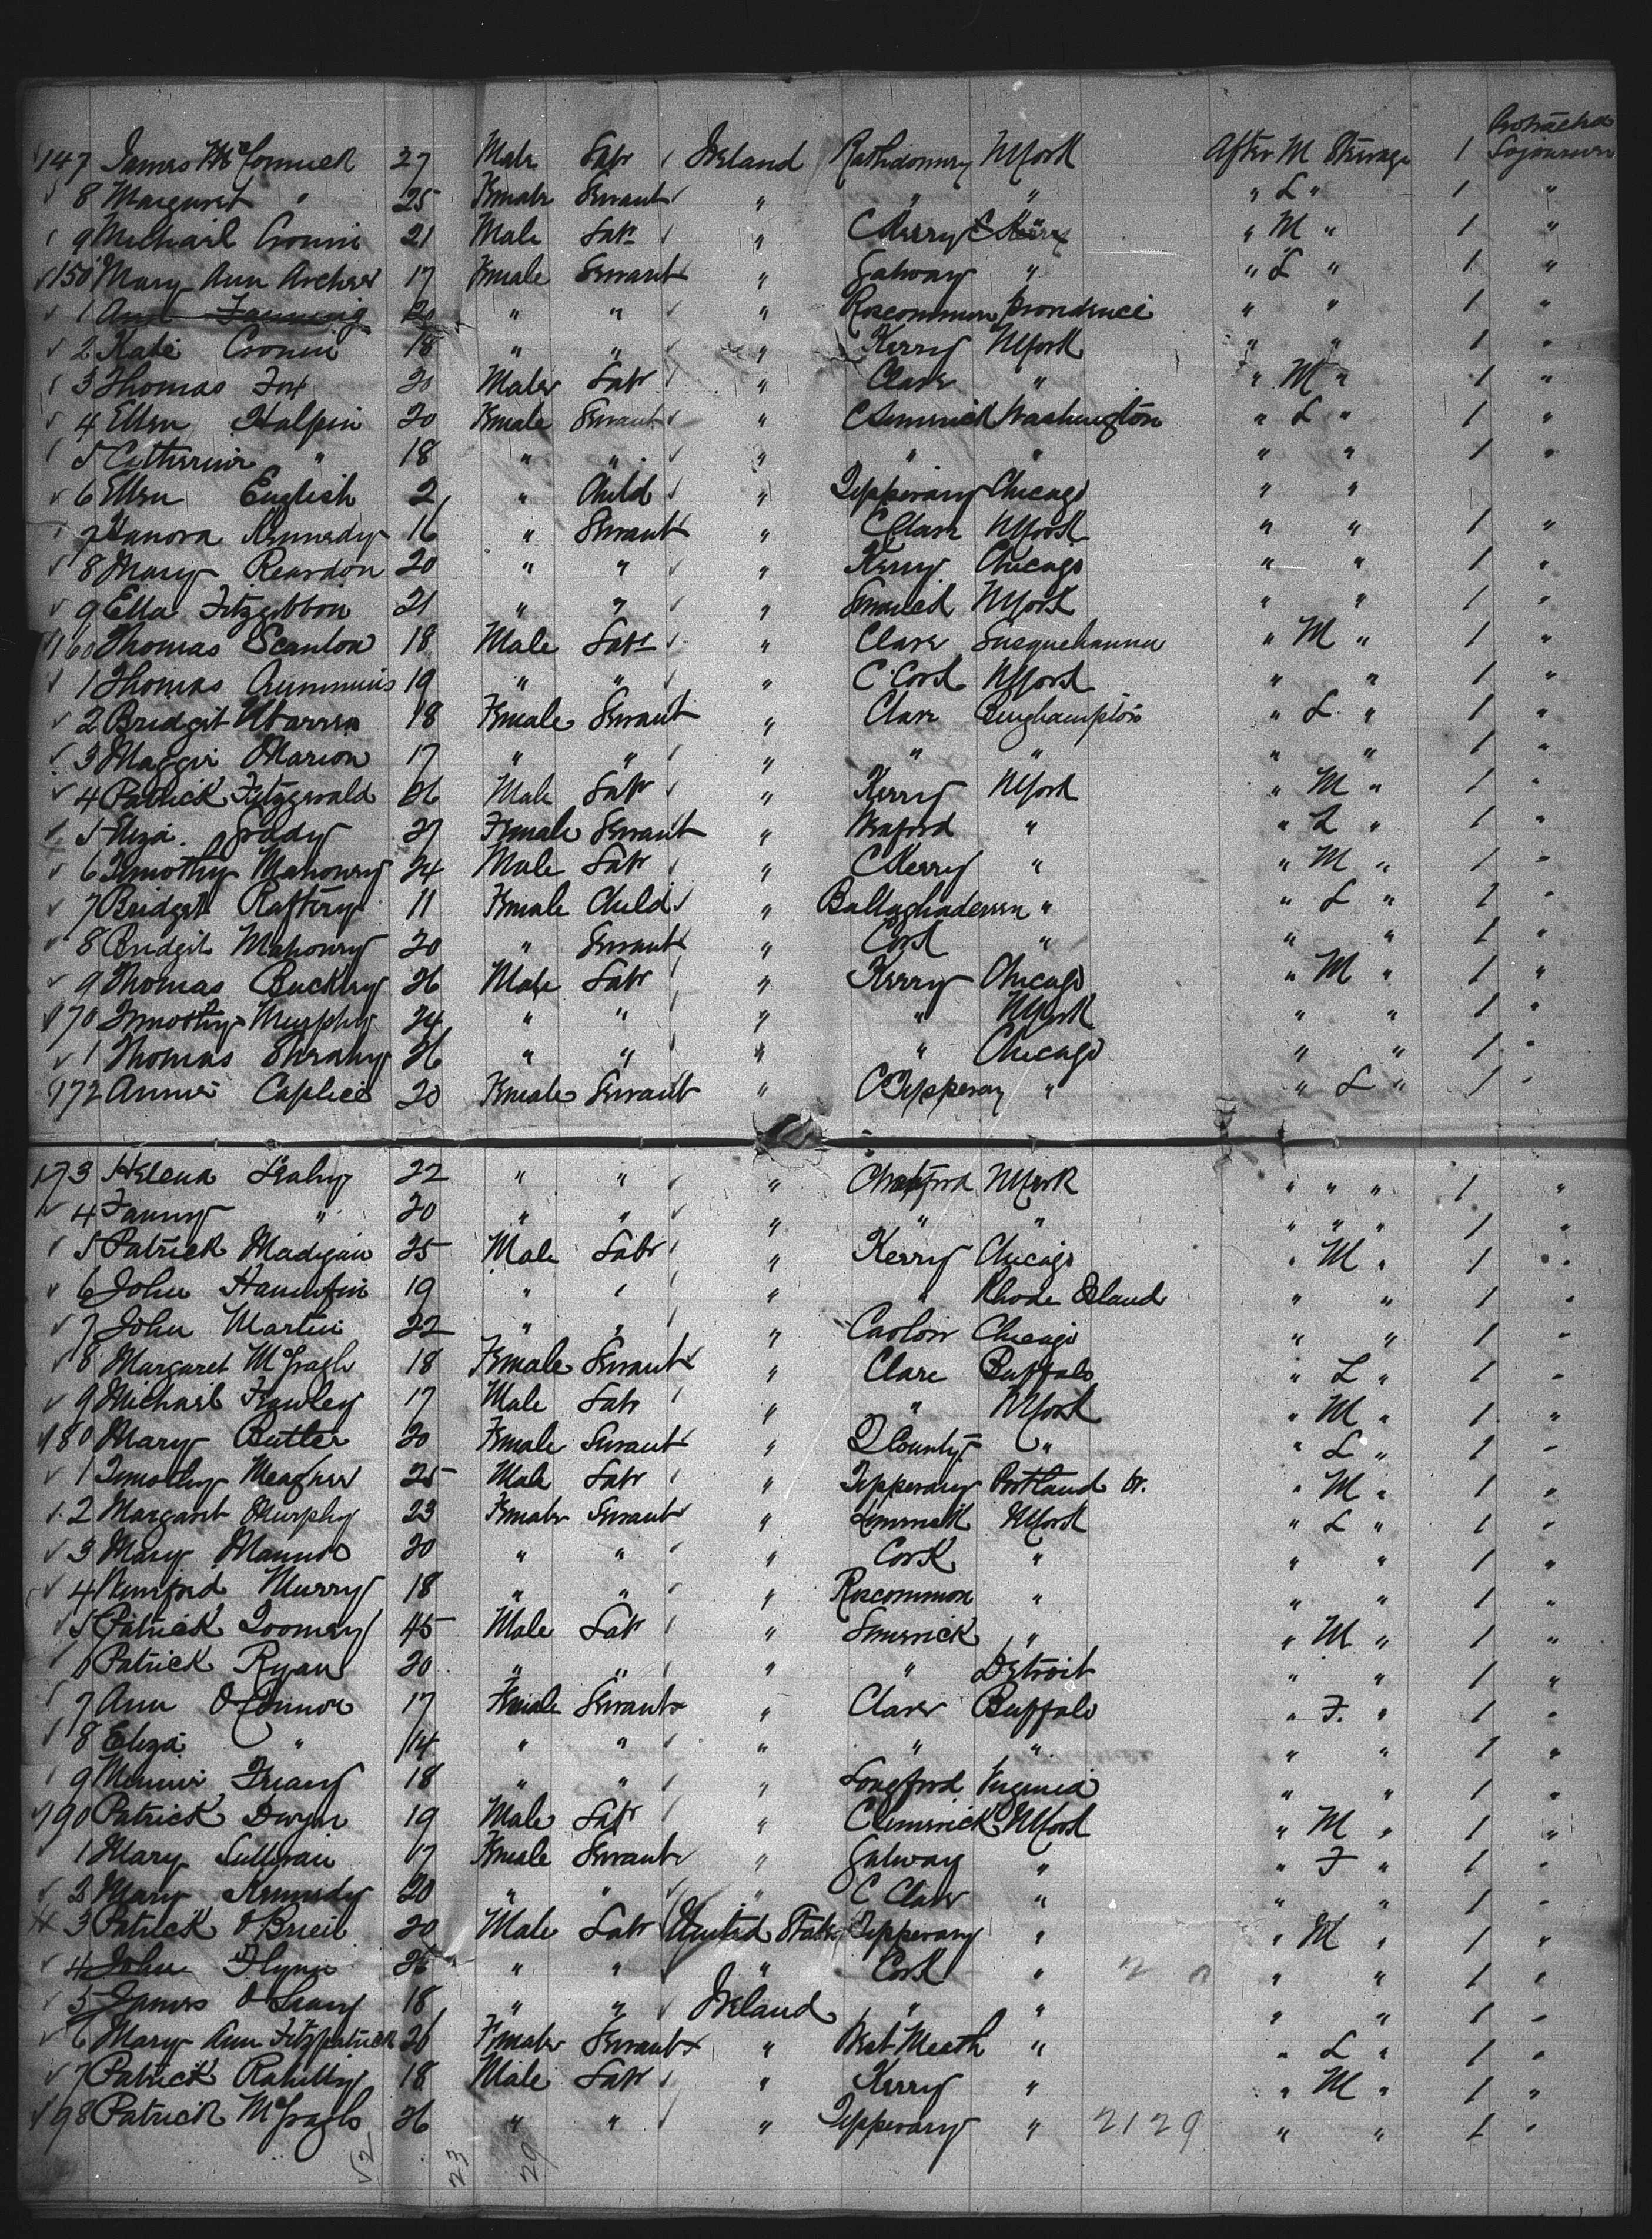 Protracted
147 James McCormick 27 Male Labr Ireland Rathdowney NYork After M Steerage 1 Sojourner
8 Margaret " 25 Female Servant " " " " L " 1 "
9 Michael Cronin 21 Male Labr " C Kerry " M " 1 "
150 Mary Ann Archer 17 Female Servant " Galway " " L " 1 "
1 Ann Fanning 20 " " " Roscommon Providence " " 1 "
2 Kate Cronin 18 " " " Kerry NYork " " 1 "
3 Thomas Fox 20 Male Labr " Clare " " M " 1 "
4 Ellen Halpin 20 Female Servant " C Limerick Washington " L " 1 "
5 Catherine " 18 " " " " " " " 1 "
6 Ellen English 2 " Child " Tipperary Chicago " "
7 Hanora Kennedy 16 " Servant " C Clare NYork " " 1 "
8 Mary Reardon 20 " " " Kerry Chicago " " 1 "
9 Ella Fitzgibbon 21 " " " Limerick NYork " " 1 "
160 Thomas Scanlon 18 Male Labr " Clare Susquehanna " M " 1 "
1 Thomas Crimmins 19 " " " C. Cork NYork " " 1 "
2 Bridget 18 Female Servant " Clare Binghampton " L " 1 "
3 Maggie Marion 17 " " " " " " " 1 "
4 Patrick Fitzgerald 26 Male Labr " Kerry NYork " M " 1 "
5 Eliza Grady 27 Female Servant " Wexford " " L " 1 "
6 Timothy Mahoney 24 Male Labr " C Kerry " " M " 1 "
7 Bridget Raftery 11 Female Child " Ballaghadereen " " L " 1 "
8 Bridget Mahoney 20 " Servant " Cork " " " 1 "
9 Thomas Buckley 26 Male Labr " Kerry Chicago " M " 1 "
170 Timothy Murphy 24 " " " " NYork " " 1 "
1 Thomas Sheahy 26 " " " " Chicago " " 1 "
172 Annie Caplice 20 Female Servant " C Tipperary " " L " 1 "
173 Helena Leahy 22 " " " NYork " " " 1 "
4 Fanny " 20 " " " " " " " " 1 "
5 Patrick Madigan 25 Male Labr " Kerry Chicago " M " 1 "
6 John 19 " " " " Rhode Island " " 1 "
7 John Martin 22 " " " Carlow Chicago " " 1 "
8 Margaret McGragh 18 Female Servant " Clare Buffalo " L " 1 "
9 Michael Frawley 17 Male Labr " " NYork " M " 1 "
180 Mary Butler 20 Female Servant " Q County " " L " 1 "
1 Timothy Meagher 25 Male Labr " Tipperary Portland " M " 1 "
2 Margaret Murphy 23 Female Servant " Limerick NYork " L " 1 "
3 Mary 20 " " " Cork " " " 1 "
4 Winifred Murry 18 " " " Roscommon " " " 1 "
5 Patrick Toomey 45 Male Labr " Limerick " " M " 1 "
6 Patrick Ryan 20 " " " " Detroit " " 1 "
7 Ann O'Connor 17 Female Servant " Clare Buffalo " F. " 1 "
8 Eliza " 14 " " " " " " " 1 "
9 Minnie 18 " " " Longford Virginia " " 1 "
190 Patrick Dwyer 19 Male Labr " C Limerick NYork " M " 1 "
1 Mary Sullivan 17 Female Servant " Galway " " F " 1 "
2 Mary Kennedy 20 " " " C Clare " " " 1 "
3 Patrick O'Brien 20 Male Labr United States Tipperary " " M " 1 "
4 John Flynn 26 " " " Cork " " " 1 "
5 James O'Leary 18 " " Ireland " " " " 1 "
6 Mary Ann Fitzpatrick 26 Female Servant " West Meath " " L " 1 "
7 Patrick Rahilly 18 Male Labr " Kerry " " M " 1 "
198 Patrick McGragh 26 " " " Tipperary " 2129 " " 1 "
52 23 29